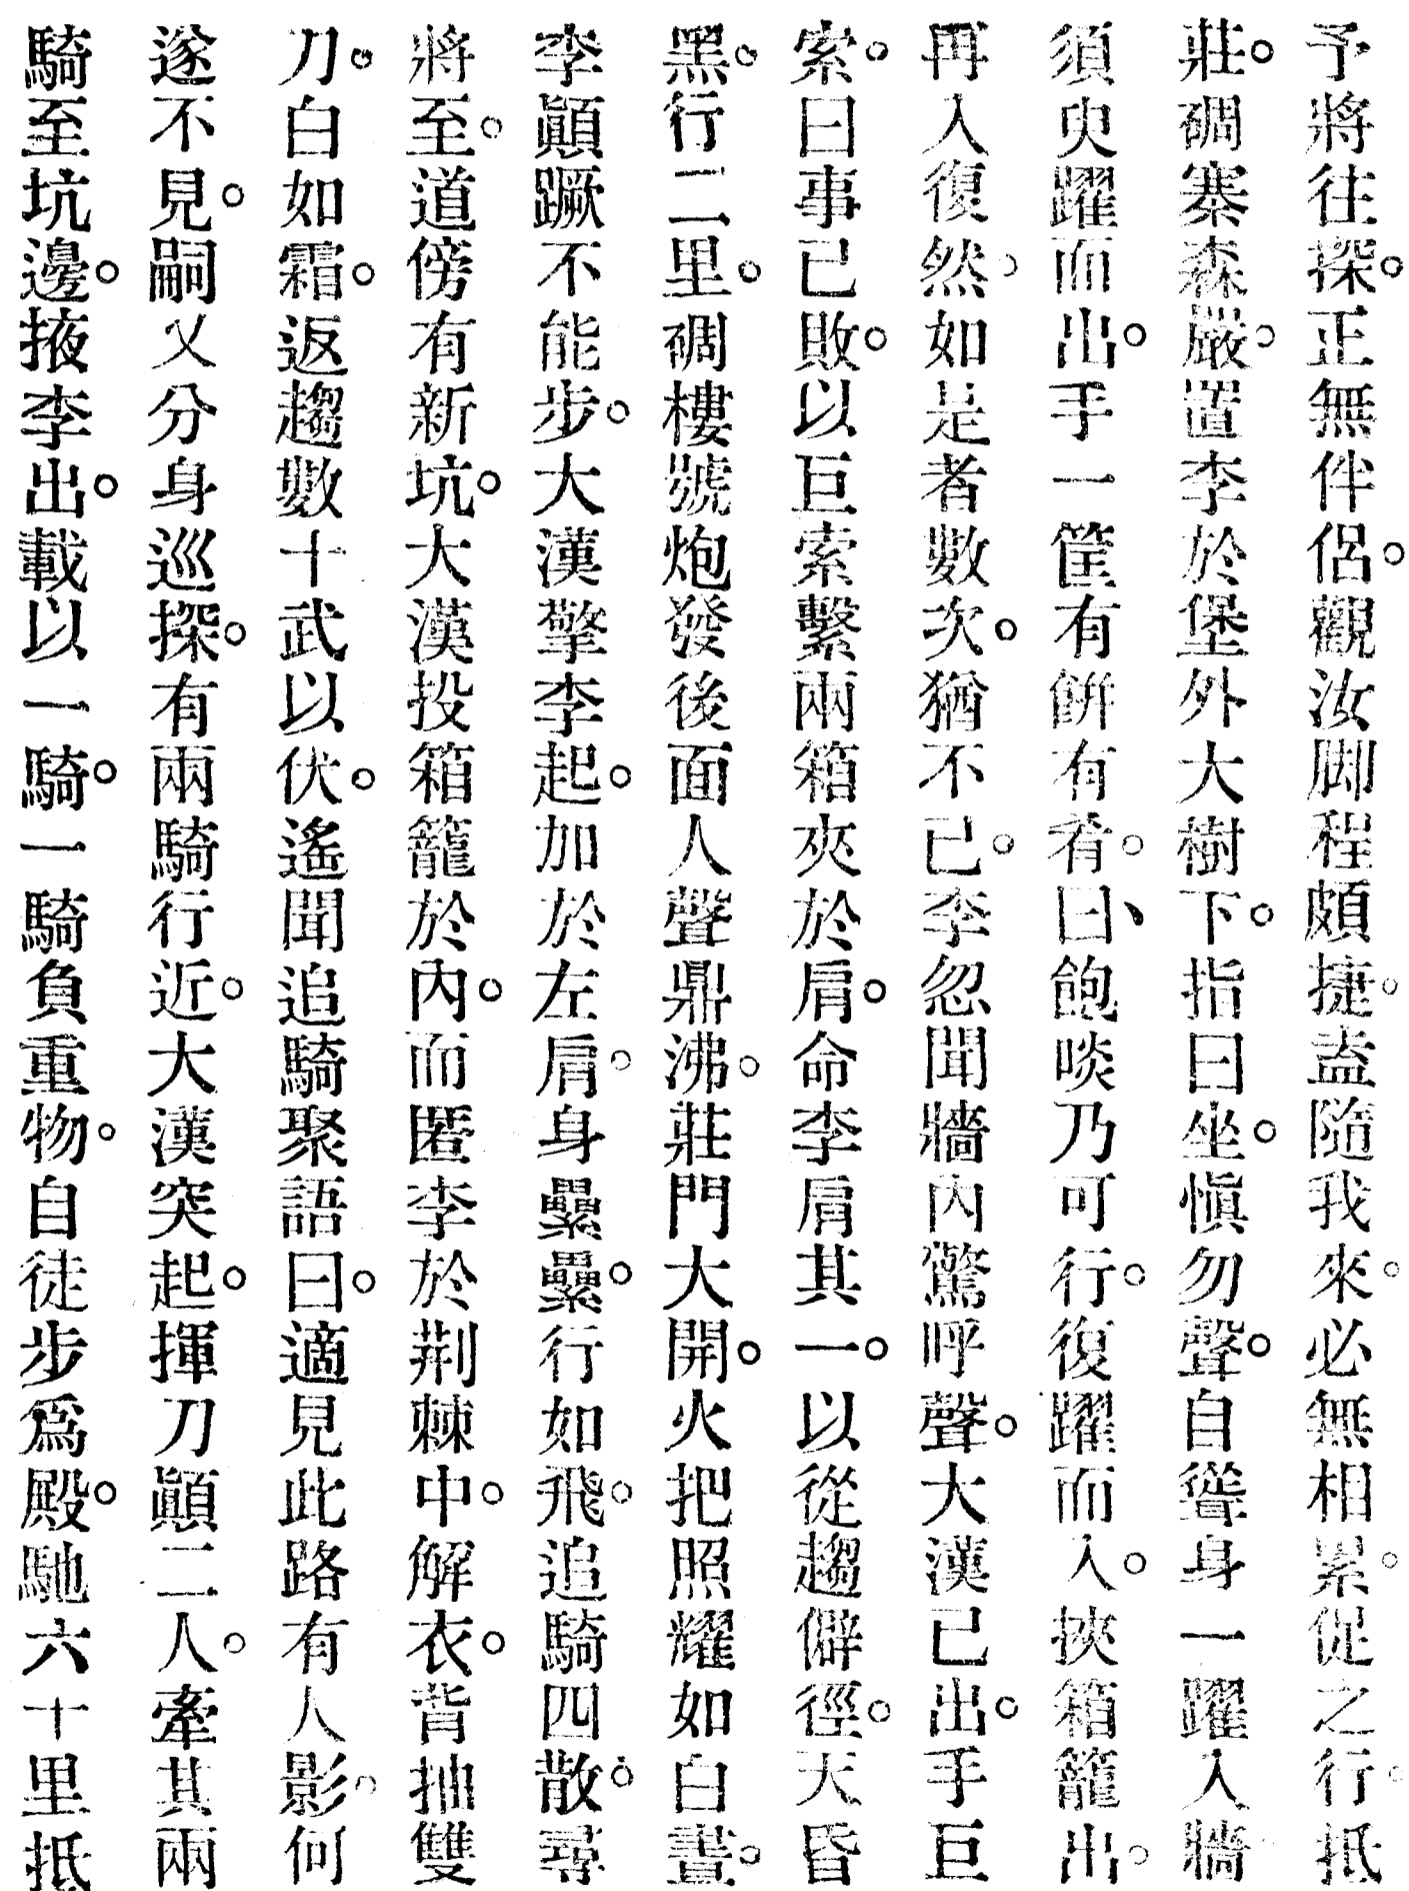 予將往探。正無伴侶。觀汝脚程頗捷。盍隨我來。必無相累。促之行。抵
莊。碉寨森嚴。置李於堡外大樹下。指曰坐。愼勿聲。自聳身一躍入牆
須臾躍而出。手一筐有餠有肴。曰、飽啖乃可行。復躍而入。挾箱籠出。
再入復然。如是者數次。猶不已。李忽聞牆內驚呼聲。大漢已出。手巨
索。曰事已敗。以巨索繫兩箱夾於肩。命李肩其一。以從趨僻徑。天昏
黑。行二里。碉樓號炮發後面人聲鼎沸。莊門大開。火把照耀如白晝。
李顚蹶不能步。大漢擎李起。加於左肩。身纍纍。行如飛。追騎四散。尋
將至。道傍有新坑。大漢投箱籠於內。而匿李於荆棘中。解衣。背抽雙
刀。白如霜。返趨數十武以伏。遙聞追騎聚語曰。適見此路有人影。何
遂不見。嗣又分身巡探。有兩騎行近。大漢突起。揮刀顚二人。牽其兩
騎至坑邊。掖李出。載以一騎。一騎負重物。自徒步爲殿。馳六十里抵